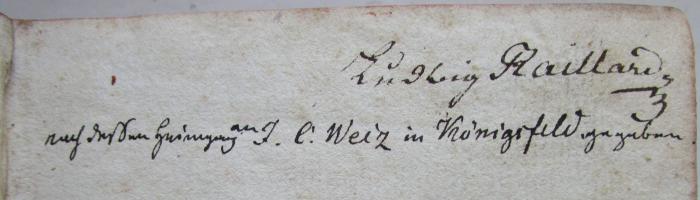 Ludwig Raillard
nach dessen Heimgang an J. C. Weiz in Königsfeld gegeben.